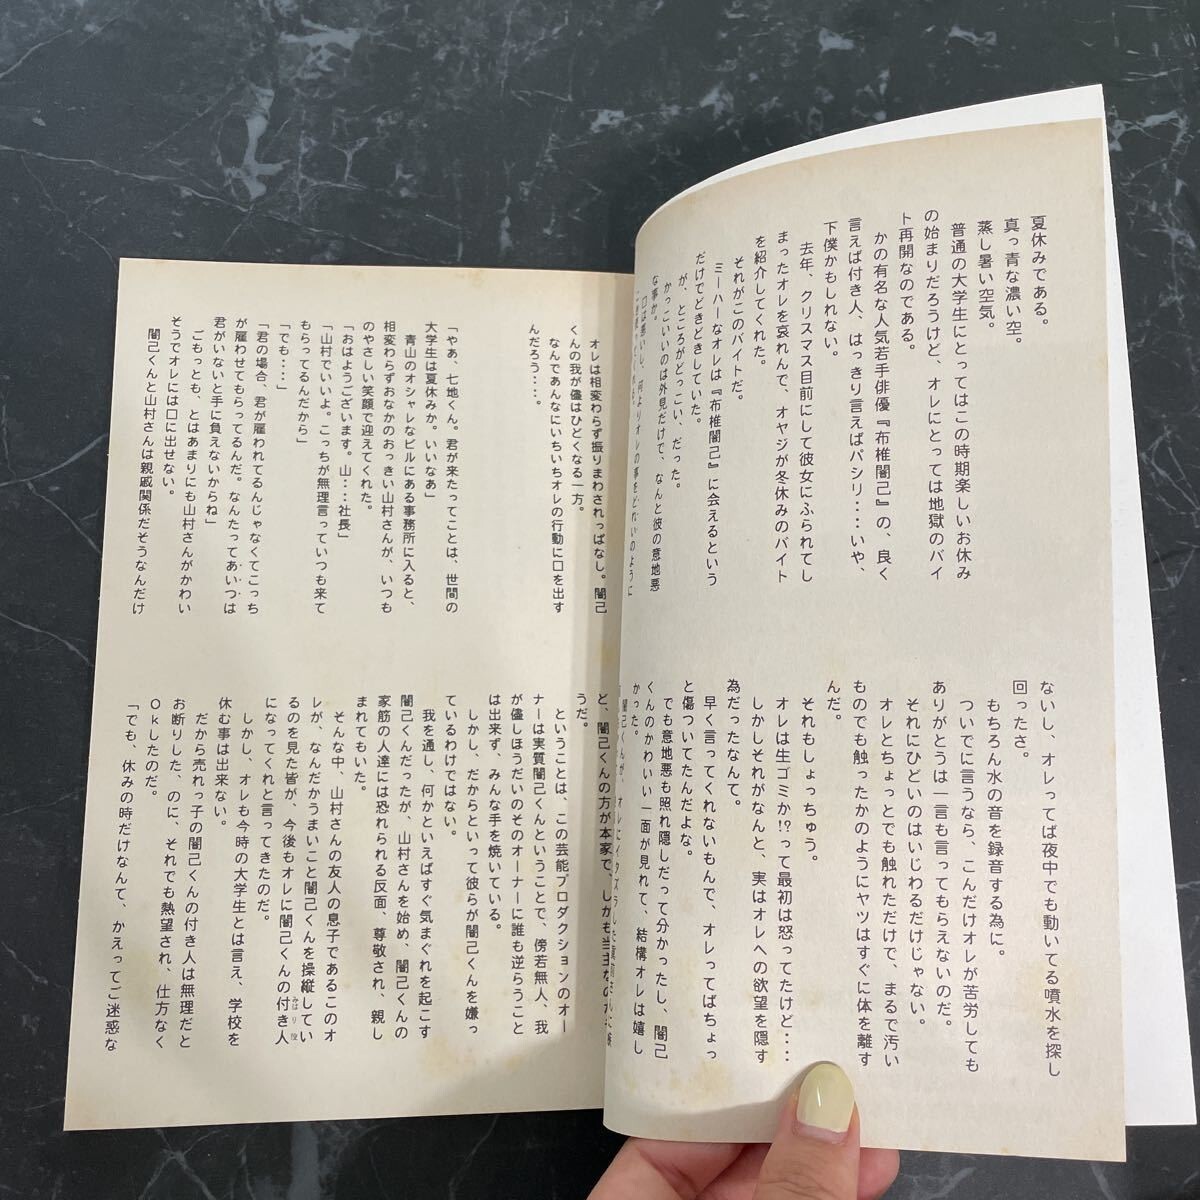 夏休みである。
真っ青な濃い空。
蒸し暑い空気。
普通の大学生にとってはこの時期楽しいお休み
の始まりだろうけど、オレにとっては地獄のバイ
ト再開なのである。
かの有名な人気若手俳優『布椎闇己』の、良く
言えば付き人、はっきり言えばパシリ・・・いや、
下僕かもしれない。
去年、クリスマス目前にして彼女にふられてし
まったオレを哀れんで、オヤジが冬休みのバイト
を紹介してくれた。
それがこのバイトだ。
ミーハーなオレは『布椎闇己』に会えるという
だけでどきどきしていた。
が、ところがどっこい、だった。
かっこいいのは外見だけで、なんと彼の意地悪
な事か。
口は悪いし、何よりオレの事をどれいのように
ないし、オレってば夜中でも動いてる噴水を探し
回ったさ。
もちろん水の音を録音する為に。
ついでに言うなら、こんだけオレが苦労しても
ありがとうは一言も言ってもらえないのだ。
それにひどいのはいじわるだけじゃない。
オレとちょっとでも触れただけで、まるで汚い
ものでも触ったかのようにヤツはすぐに体を離す
んだ。
それもしょっちゅう。
オレは生ゴミか!?って最初は怒ってたけど・・・・
しかしそれがなんと、実はオレへの欲望を隠す
為だったなんて。
早く言ってくれないもんで、オレってばちょっ
と傷ついてたんだよな。
でも意地悪も照れ隠しだって分かったし、闇己
くんのかわいい一面が見れて、結構オレは嬉し
かった。
オレは相変わらず振りまわされっぱなし。闇己
くんの我が儘はひどくなる一方。
なんであんなにいちいちオレの行動に口を出す
んだろう・・・・。
「やあ、七地くん。君が来たってことは、世間の
大学生は夏休みか。いいなあ」
青山のオシャレなビルにある事務所に入ると、
相変わらずおなかのおっきい山村さんが、いつも
のやさしい笑顔で迎えてくれた。
「おはようございます。山・・・社長」
「山村でいいよ。こっちが無理言っていつも来て
もらってるんだから」
「でも・・・・」
「君の場合、君が雇われてるんじゃなくてこっち
が雇わせてもらってるんだ。なんたってあいつは
君がいないと手に負えないからね」
ごもっとも、とはあまりにも山村さんがかわい
そうでオレには口に出せない。
闇己くんと山村さんは親戚関係だそうなんだけ
ど、闇己くんの方が本家で、しかも当主なのだ
うだ。
ということは、この芸能プロダクションのオー
ナーは実質闇己くんということで、傍若無人、我
が儘しほうだいのそのオーナーに誰も逆らうこと
は出来ず、みんな手を焼いている。
しかし、だからといって彼らが闇己くんを嫌っ
ているわけではない。
我を通し、何かといえばすぐ気まぐれを起こす
闇己くんだったが、山村さんを始め、闇己くんの
家筋の人達には恐れられる反面、尊敬され、親し
まれてもいた。
そんな中、山村さんの友人の息子であるこのオ
レが、なんだかうまいこと闇己くんを操縦してい
るのを見た皆が、今後もオレに闇己くんの付き人
になってくれと言ってきたのだ。
しかし、オレも今時の大学生とは言え、学校を
休む事は出来ない。
だから売れっ子の闇己くんの付き人は無理だと
お断りした、のに、それでも熱望され、仕方なく
Ｏｋしたのだ。
「でも、休みの時だけなんて、かえってご迷惑な